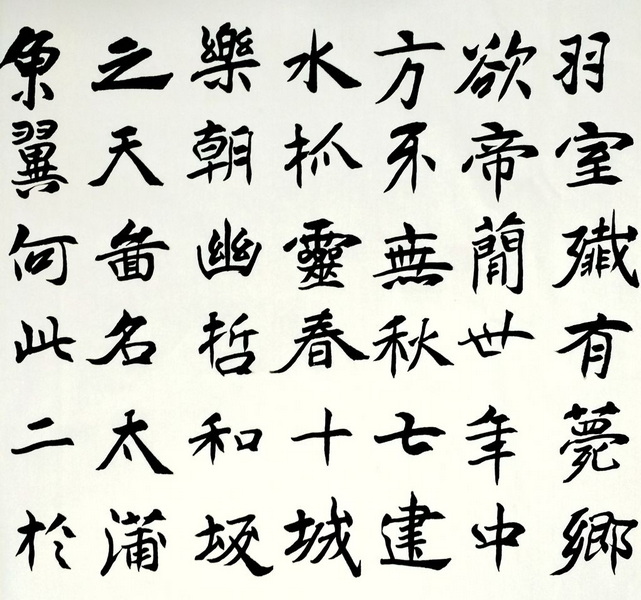 羽室殲有薨鄉
欲帝簡世年中
方不無秋七建
水抓靈春十城
樂朝幽哲和坂
之天啚名太蒲
翼何此二於